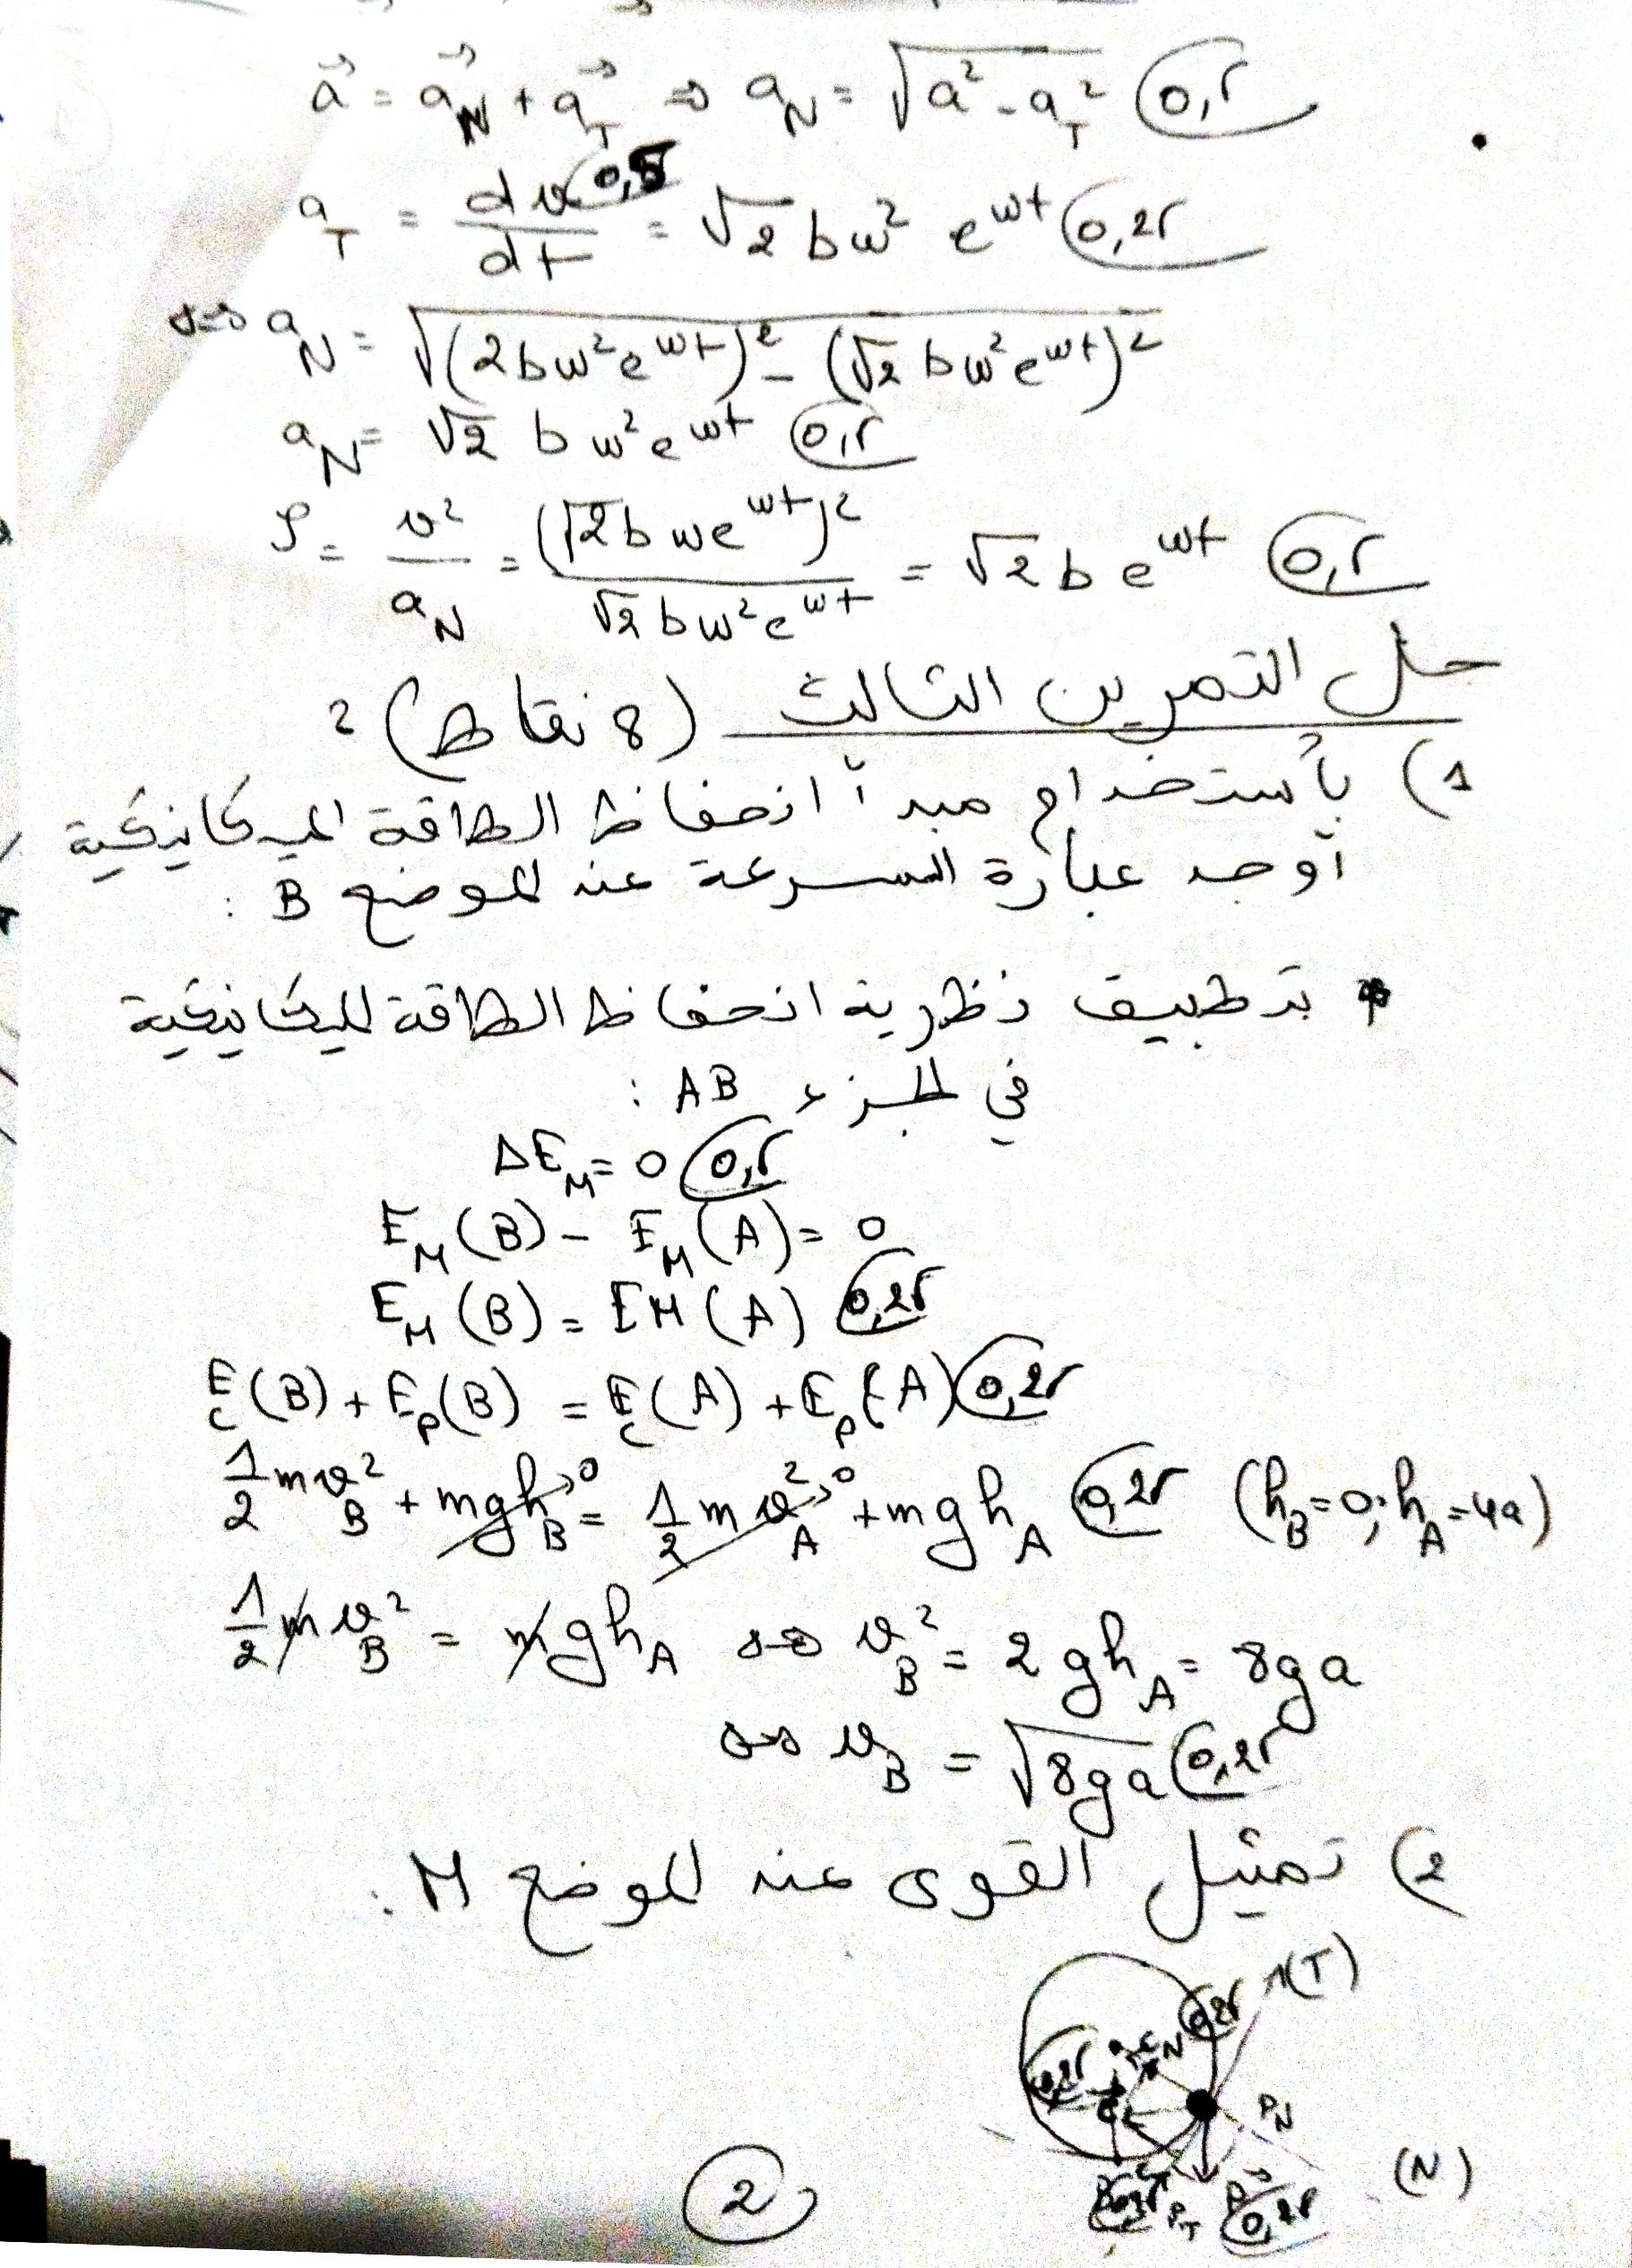 a⃗ = a⃗_N + a⃗_T ⇒ a_N = √(a² - a_T²) 0,5
a_T = dv/dt 0,5 = √2 bω² e^ωt 0,25
⇒ a_N = √((2bω²e^ωt)² - (√2 bω²e^ωt)²)
a_N = √2 bω²e^ωt 0,5
ρ = v²/a_N = (√2 bωe^ωt)²/(√2 bω²e^ωt) = √2 b e^ωt 0,5
حل التمرين الثالث (8 نقاط) :
1) بأستخدام مبدأ انحفاظ الطاقة الميكانيكية
أوجد عبارة السرعة عند الموضع B :
بتطبيق نظرية انحفاظ الطاقة الميكانيكية
في الجزء AB :
ΔE_M = 0 0,5
E_M(B) - E_M(A) = 0
E_M(B) = EM(A) 0,25
E_c(B) + E_p(B) = E_c(A) + E_p(A) 0,25
1/2 mv_B² + mgh_B→0 = 1/2 mv_A²→0 + mgh_A 0,25 (h_B=0; h_A=4a)
1/2 mv_B² = mgh_A ⇒ v_B² = 2gh_A = 8ga
⇒ v_B = √(8ga) 0,25
2) تمثيل القوى عند الموضع M :
(T)
0,25
N
0,25
P_N
(N)
P_T
P⃗
0,25
2